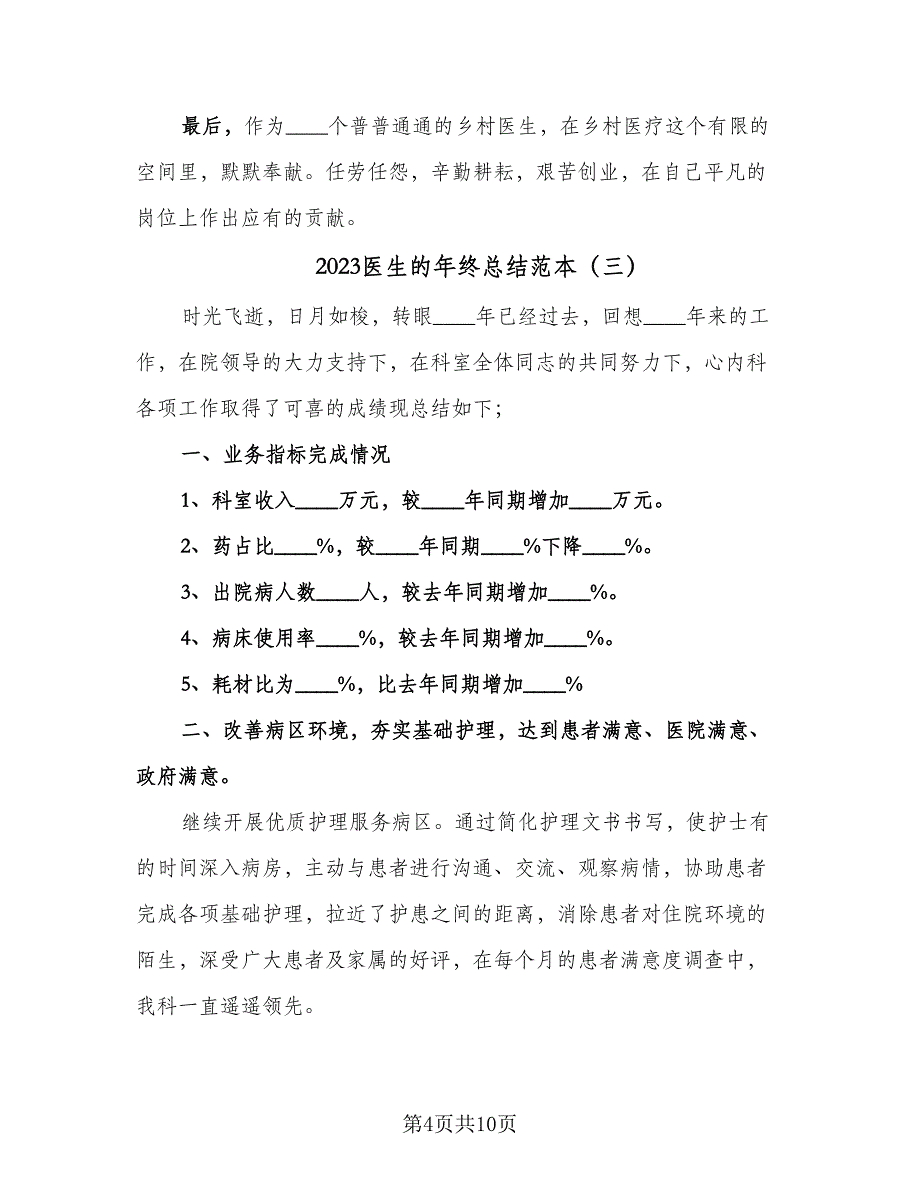 最后，作为____个普普通通的乡村医生，在乡村医疗这个有限的
空间里，默默奉献。任劳任怨，辛勤耕耘，艰苦创业，在自己平凡的
岗位上作出应有的贡献。
2023医生的年终总结范本（三）
时光飞逝，日月如梭，转眼____年已经过去，回想____年来的工
作，在院领导的大力支持下，在科室全体同志的共同努力下，心内科
各项工作取得了可喜的成绩现总结如下；
一、业务指标完成情况
1、科室收入____万元，较____年同期增加____万元。
2、药占比____%，较____年同期____%下降____%。
3、出院病人数____人，较去年同期增加____%。
4、病床使用率____%，较去年同期增加____%。
5、耗材比为____%，比去年同期增加____%
二、改善病区环境，夯实基础护理，达到患者满意、医院满意、
政府满意。
继续开展优质护理服务病区。通过简化护理文书书写，使护士有
的时间深入病房，主动与患者进行沟通、交流、观察病情，协助患者
完成各项基础护理，拉近了护患之间的距离，消除患者对住院环境的
陌生，深受广大患者及家属的好评，在每个月的患者满意度调查中，
我科一直遥遥领先。
第4页共10页